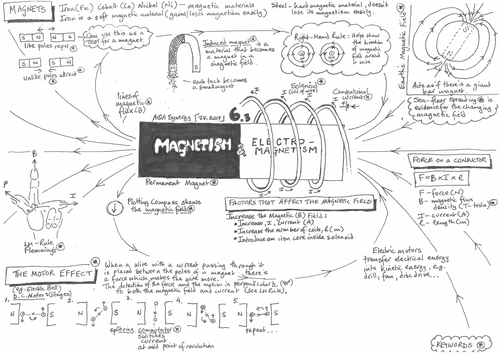 MAGNETS
Iron (Fe) Cobalt (Co) Nickel (Ni) - Magnetic materials
Iron is a soft magnetic material (gains/loses magnetism easily)
Steel - hard magnetic material doesn't
lose its magnetism easily.
S N N S
like poles repel
Can use this as a
TEST for a magnet
N S N S
unlike poles attract
Induced magnet is a
material that becomes
a magnet in a
magnetic field
each tack becomes
a small magnet
Right-Hand Rule: helps show
the direction
of magnetic
field around
a wire
Earth's Magnetic Field
Acts as if there is a giant
bar magnet.
Sea-floor spreading is
evidence for the changing
magnetic field
lines of
magnetic
flux (B)
Solenoid
(coil of wire)
Conventional
current
AQA Synergy
6.3
MAGNETISM & ELECTRO-
MAGNETISM
Permanent Magnet
Plotting Compass shows
the magnetic field
FACTORS THAT AFFECT THE MAGNETIC FIELD
Increase the Magnetic (B) Field:
• Increase, I, Current (A)
• Increase the number of coils, l (m)
• Introduce an iron core inside solenoid
FORCE ON A CONDUCTOR
F = B x I x l
F - force (N)
B - magnetic flux
density (T - tesla)
I - current (A)
L - length (m)
B
F
I
Flemmings
THE MOTOR EFFECT
(eg. Electric Bell)
D.C. Motor (Stages)
When a wire with a current passing through it
is placed between the poles of a magnet there is
a force which makes the wire move.
The direction of the force and the motion is perpendicular (90°)
to both the magnetic field and current (see LH Rule).
Electric motors
transfer electrical energy
into kinetic energy, e.g.
drill, fan, disc drive...
1. 2. 3. 4. 5.
N S N S N S N S N S
split ring commutator
switches
current
at mid point of revolution
repeat...
KEYWORDS